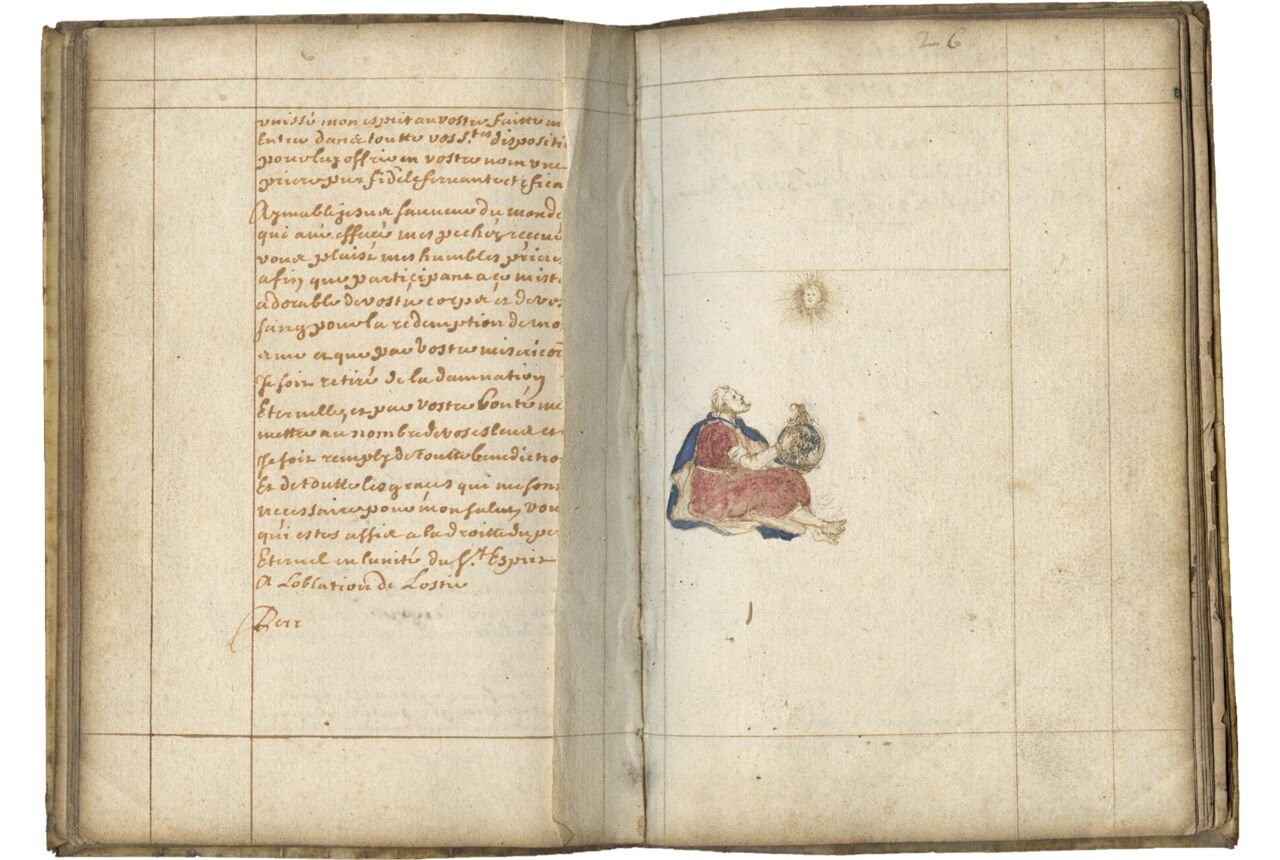 vnissé mon esprit au vostre faitte
Entrer dans toutte vos s.tes dispositi
pour luy offrir en vostre nom vne
priere pur fidele feruante et efica
Aymable jesus sauueur du monde
qui aué effacé mes pechez receué
vous plaist mes humbles priere
afin que participant a ce mist
adorable de vostre corps et de vos
sang pour la redemption de mo
ame et que par vostre misericor
Je soit retiré de la damnation
Eternelle, et par vostre bonté me
mettre au nombre de vos esleus et
Je soit remply de toutte benedictio
Et de toutte les graces qui me son
necessaire pour mon salut, vou
qui estes assis a la droitte du pe
Eternel en lunité du St. Esprit
A Loblation de Lostie
Rece
26